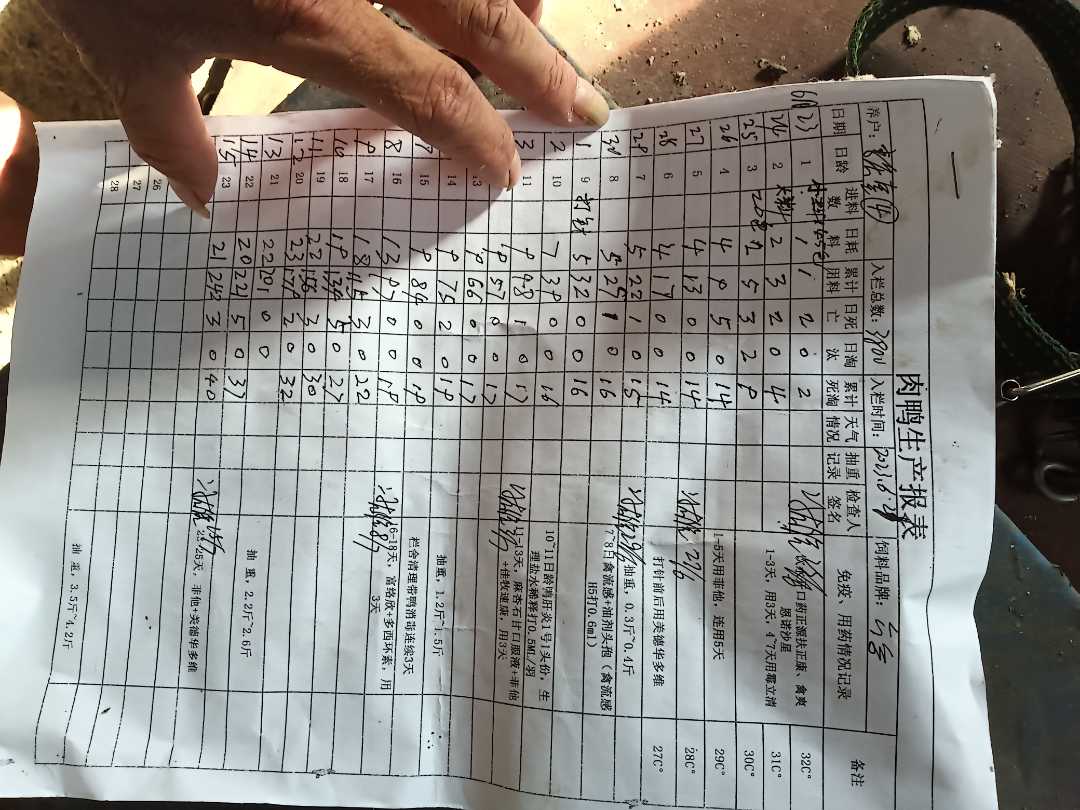 肉鸭生产报表
养户： 入栏总数：3800 入栏时间：2023.6.21 饲料品牌：
日期 日龄 进料数 日耗料 累计团料 日死亡 日淘汰 累计死淘 天气情况 抽重记录 检查人签名 免疫、用药情况记录 备注
6月23 1 1 1 2 0 2 32C°
24 2 大料 2 3 2 0 4 1-3天，用3天，4~7天用霉立清 31C°
25 3 208 2 5 3 2 9 30C°
26 4 4 9 5 0 14 1-5天用非他，连用5天 29C°
27 5 4 13 0 0 14 27/6 28C°
28 6 4 17 0 0 14 打针前后用美德华多维 27C°
29 7 5 22 1 0 15 29/6 抽重，0.3斤~0.4斤
30 8 5 27 1 0 16 7~8日禽流感+油剂头孢（禽流感H5打0.6ml）
1 9 打针 5 32 0 0 16
2 10 7 39 0 0 16 10~11日龄鸭肝炎1号1头份，生理盐水稀释打0.5ML/羽
3 11 9 48 1 0 17
9 57 0 0 17 11-13天，麻杏石甘口服液+非他+佳牧速康，用3天
13 9 66 0 0 17
14 9 75 2 0 19 抽重，1.2斤~1.5斤
15 9 84 0 0 19 栏舍清理带鸭消毒连续3天
8 16 13 97 0 0 19 16-18天，富络欣+多西环素，用3天
9 17 18 115 3 0 22
10 18 19 134 5 0 27
11 19 22 156 3 0 30
12 20 23 179 2 0 32
13 21 22 201 0 0 抽重，2.2斤~2.6斤
14 22 20 221 5 0 37
15 23 21 242 3 0 40 23~25天，非他+美德华多维
26
27
28 抽重，3.5斤~4.2斤